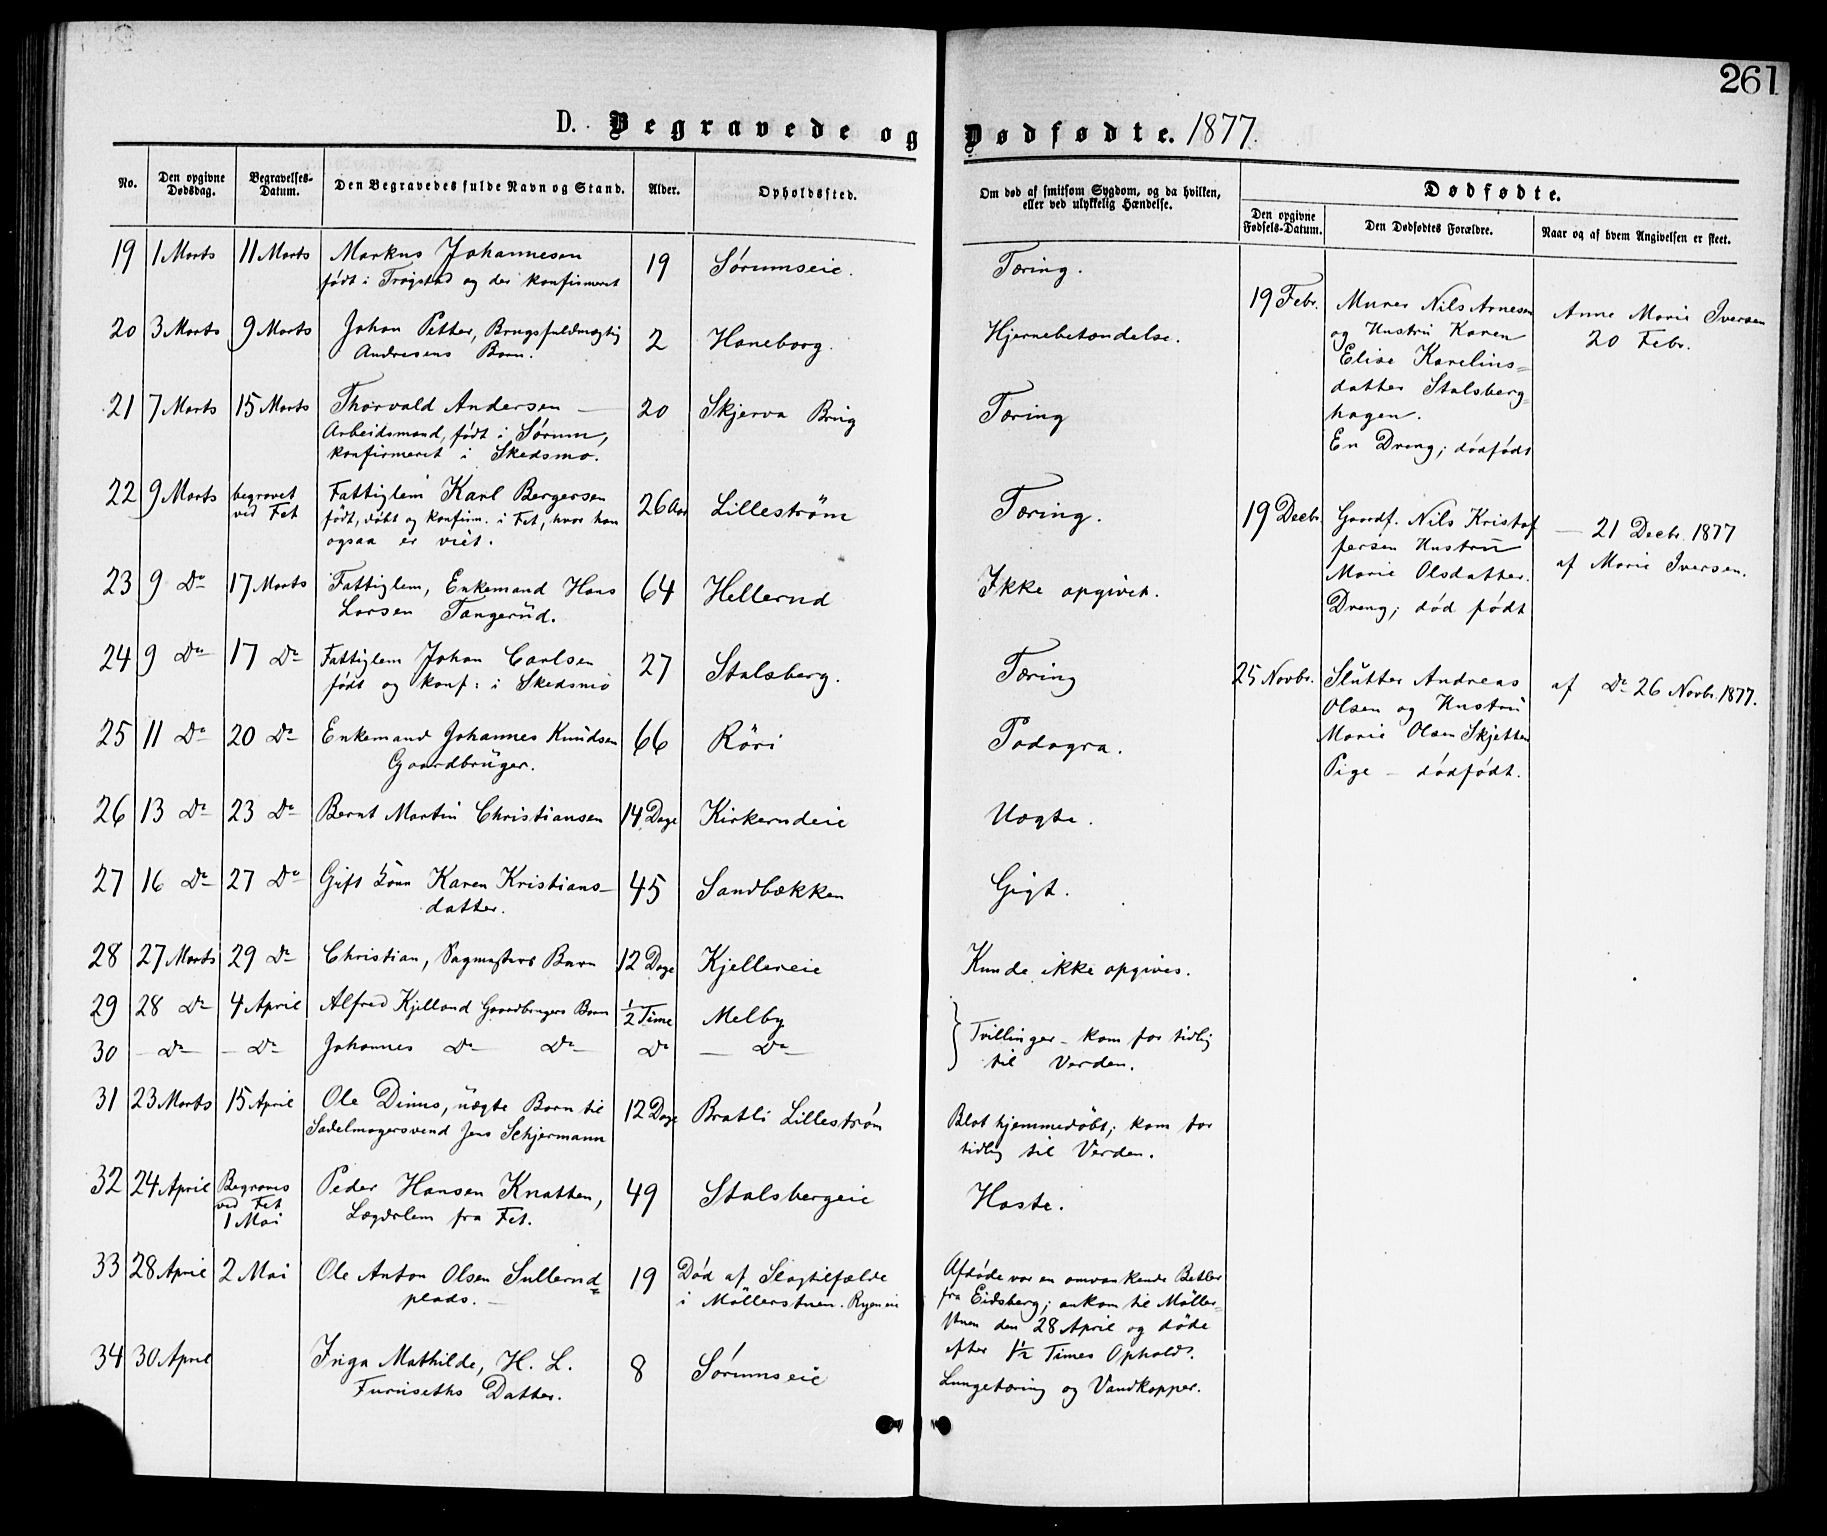 261
D. Begravede og Dødfødte. 1877.
No.
Den opgivne Dødsdag.
Begravelses-Datum.
Den Begravedes fulde Navn og Stand.
Alder.
Opholdssted.
Om død af smitsom Sygdom, og da hvilken, eller ved ulykkelig Hændelse.
Dødfødte.
Den opgivne Fødsels-Datum.
Den Dødfødtes Forældre.
Naar og af hvem Angivelsen er skeet.
19 1 Marts 11 Marts Markus Johannesen 19 Sørumseie. Tæring.
født i Trøgstad og der konfirmeret
20 3 Marts 9 Marts Johan Petter, Brugsfuldmægtig 2 Haneborg. Hjernebetændelse.
Andresens Barn.
21 7 Marts 15 Marts Thorvald Andersen — 20 Skjerva Brug Tæring
Arbeidsmand, født i Sørum,
konfirmeret i Skedsmo.
22 9 Marts begravet Fattiglem Karl Bergersen 26 Aar Lillestrøm Tæring.
ved Fet født, døbt og konfirm. i Fet, hvor han
ogsaa er viet.
23 9 Do 17 Marts Fattiglem, Enkemand Hans 64 Hellerud Ikke opgivet.
Larsen Tangerud.
24 9 Do 17 Do Fattiglem Johan Carlsen 27 Stalsberg. Tæring
født og konf: i Skedsmo
25 11 Do 20 Do Enkemand Johannes Knudsen 66 Röri Podagra.
Gaardbruger.
26 13 Do 23 Do Bernt Martin Christiansen 14 Dage Kirkerudeie Uægte.
27 16 Do 27 Do Gift Kone Karen Kristians- 45 Sandbækken Gigt.
datter.
28 27 Marts 29 Do Christian, Sagmesters Barn 12 Dage Kjellereie Kunde ikke opgives.
29 28 Do 4 April Alfred Kjelland Gaardbrugers Barn 1/2 Time Melby
30 — Do — — Do — Johannes Do — Do — Do — Do —
} Tvillinger — kom for tidlig
til Verden.
31 23 Marts 15 April Ole Dinus, uægte Barn til 12 Dage Bratli Lillestrøm Blot hjemmedøbt; kom for
Sadelmagersvend Jens Schjermann tidlig til Verden.
32 24 April Begraves Peder Hansen Knatten, 49 Stalsbergeie Hoste.
ved Fet Lægdslem fra Fet.
1 Mai
33 28 April 2 Mai Ole Anton Olsen Sullerud= 19 Død af Slagtilfælde Afdøde var en omvankende Betler
plads. — i Möllerstuen. Ryeneie fra Eidsberg; ankom til Møller=
stuen den 28 April og døde
efter 1/2 Times Ophold.
34 30 April Inga Mathilde, H. L. 8 Sørumseie Lungetæring og Vandkopper.
Furuseths Datter.
19 Febr. Murer Nils Arnesen Anne Marie Iversen
og Hustru Karen 20 Febr.
Elise Karelius=
datter Stalsberg=
hagen.
En Dreng; dødfødt
19 Decbr. Gaardf. Nils Kristof — 21 Decbr. 1877
fersen Hustru af Marie Iversen.
Marie Olsdatter.
Dreng; død født
25 Novbr. Slutter Andreas af Do 26 Novbr. 1877.
Olsen og Hustru
Marie Olsen Skjetten
Pige — dødfødt.